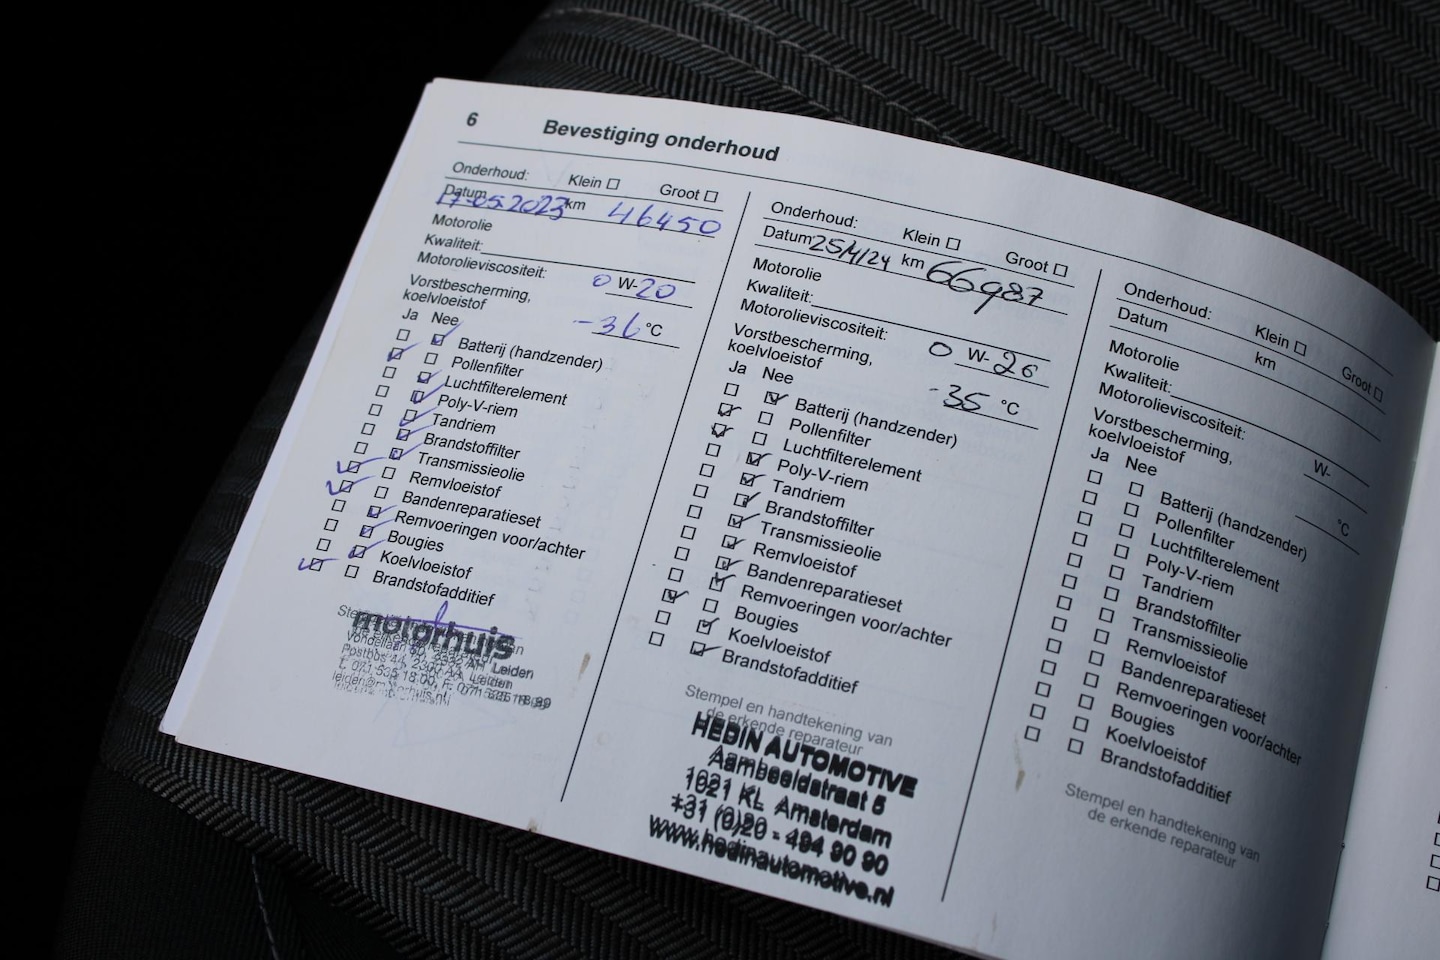 6 Bevestiging onderhoud
Onderhoud: Klein Groot
Datum 17-05-2023 km 46450
Motorolie
Kwaliteit:
Motorolieviscositeit: 0 W-20
Vorstbescherming,
koelvloeistof -36 °C
Ja Nee
Batterij (handzender)
Pollenfilter
Luchtfilterelement
Poly-V-riem
Tandriem
Brandstoffilter
Transmissieolie
Remvloeistof
Bandenreparatieset
Remvoeringen voor/achter
Bougies
Koelvloeistof
Brandstofadditief
motorhuis
Leiden
Onderhoud: Klein Groot
Datum km 66987
Motorolie
Kwaliteit:
Motorolieviscositeit: 0 W-20
Vorstbescherming,
koelvloeistof -35 °C
Ja Nee
Batterij (handzender)
Pollenfilter
Luchtfilterelement
Poly-V-riem
Tandriem
Brandstoffilter
Transmissieolie
Remvloeistof
Bandenreparatieset
Remvoeringen voor/achter
Bougies
Koelvloeistof
Brandstofadditief
Stempel en handtekening van
de erkende reparateur
HEDIN AUTOMOTIVE
Aambeeldstraat 5
1021 KL Amsterdam
+31 (0)20 - 494 90 90
www.hedinautomotive.nl
Onderhoud: Klein Groot
Datum km
Motorolie
Kwaliteit:
Motorolieviscositeit: W-
Vorstbescherming,
koelvloeistof °C
Ja Nee
Batterij (handzender)
Pollenfilter
Luchtfilterelement
Poly-V-riem
Tandriem
Brandstoffilter
Transmissieolie
Remvloeistof
Bandenreparatieset
Remvoeringen voor/achter
Bougies
Koelvloeistof
Brandstofadditief
Stempel en handtekening van
de erkende reparateur